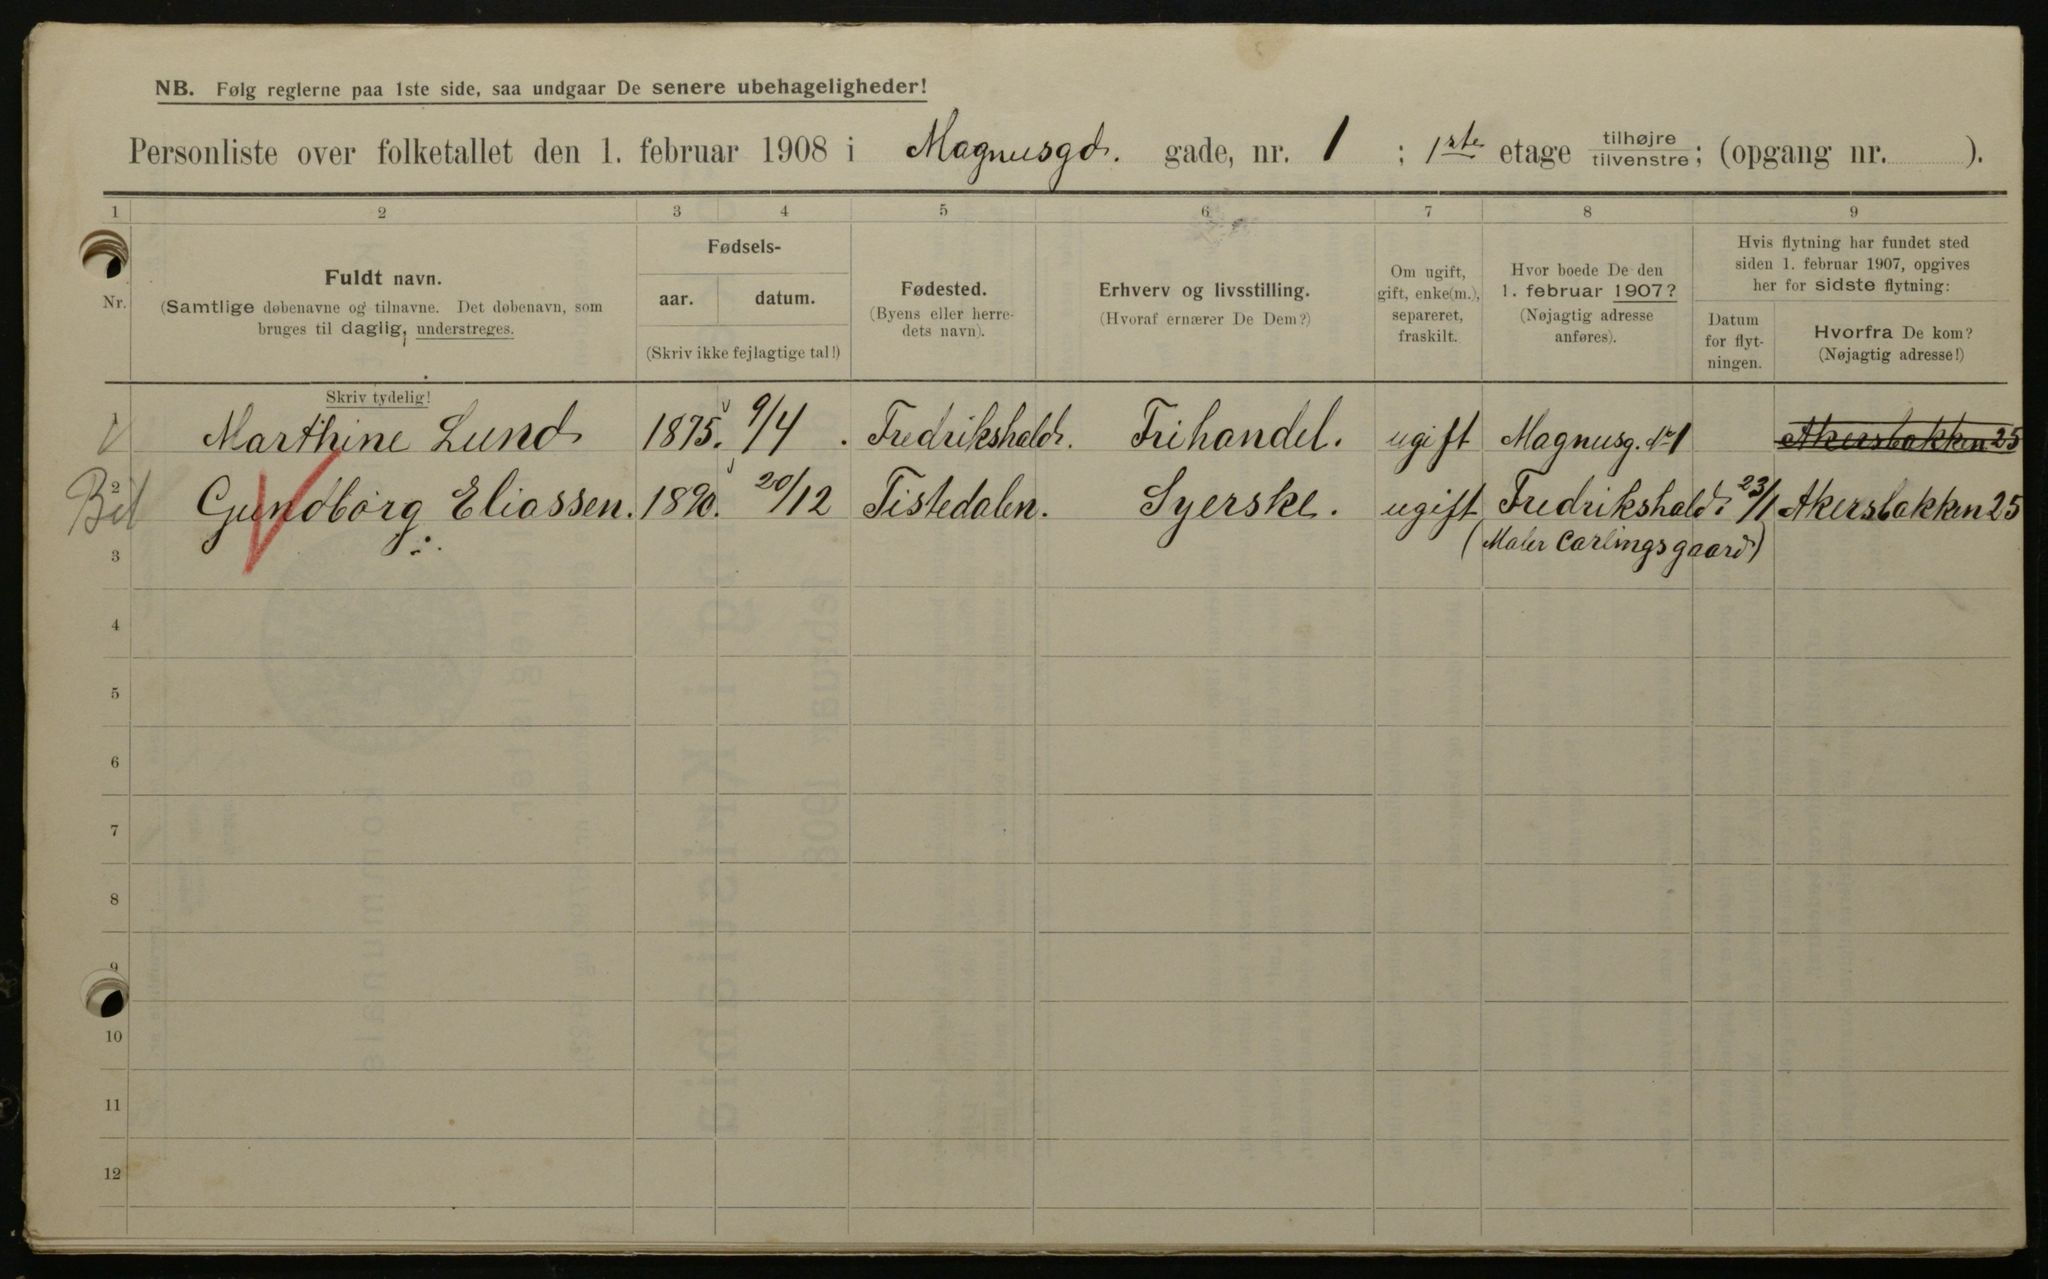 NB. Følg reglerne paa 1ste side, saa undgaar De senere ubehageligheder!
Personliste over folketallet den 1. februar 1908 i Magnusgd. gade, nr. 1 ; 1ste etage tilhøjre tilvenstre; (opgang nr. ).
1 2 3 4 5 6 7 8 9
Nr.
Fuldt navn.
(Samtlige døbenavne og tilnavne. Det døbenavn, som
bruges til daglig, understreges.
Fødsels-
aar. datum.
(Skriv ikke fejlagtige tal!)
Fødested.
(Byens eller herre-
dets navn).
Erhverv og livsstilling.
(Hvoraf ernærer De Dem?)
Om ugift,
gift, enke(m.),
separeret,
fraskilt.
Hvor boede De den
1. februar 1907?
(Nøjagtig adresse
anføres).
Hvis flytning har fundet sted
siden 1. februar 1907, opgives
her for sidste flytning:
Datum
for flyt-
ningen.
Hvorfra De kom?
(Nøjagtig adresse!)
Skriv tydelig!
1 Marthine Lund 1875. 9/4 . Fredrikshald. Frihandel. ugift Magnusg. No 1 Akersbakken 25
2 Gundborg Eliassen. 1890. 20/12 Tistedalen. Syerske. ugift Fredrikshald. 23/1 Akersbakken 25
3 (Maler Carlingsgaard)
4
5
6
7
8
9
10
11
12